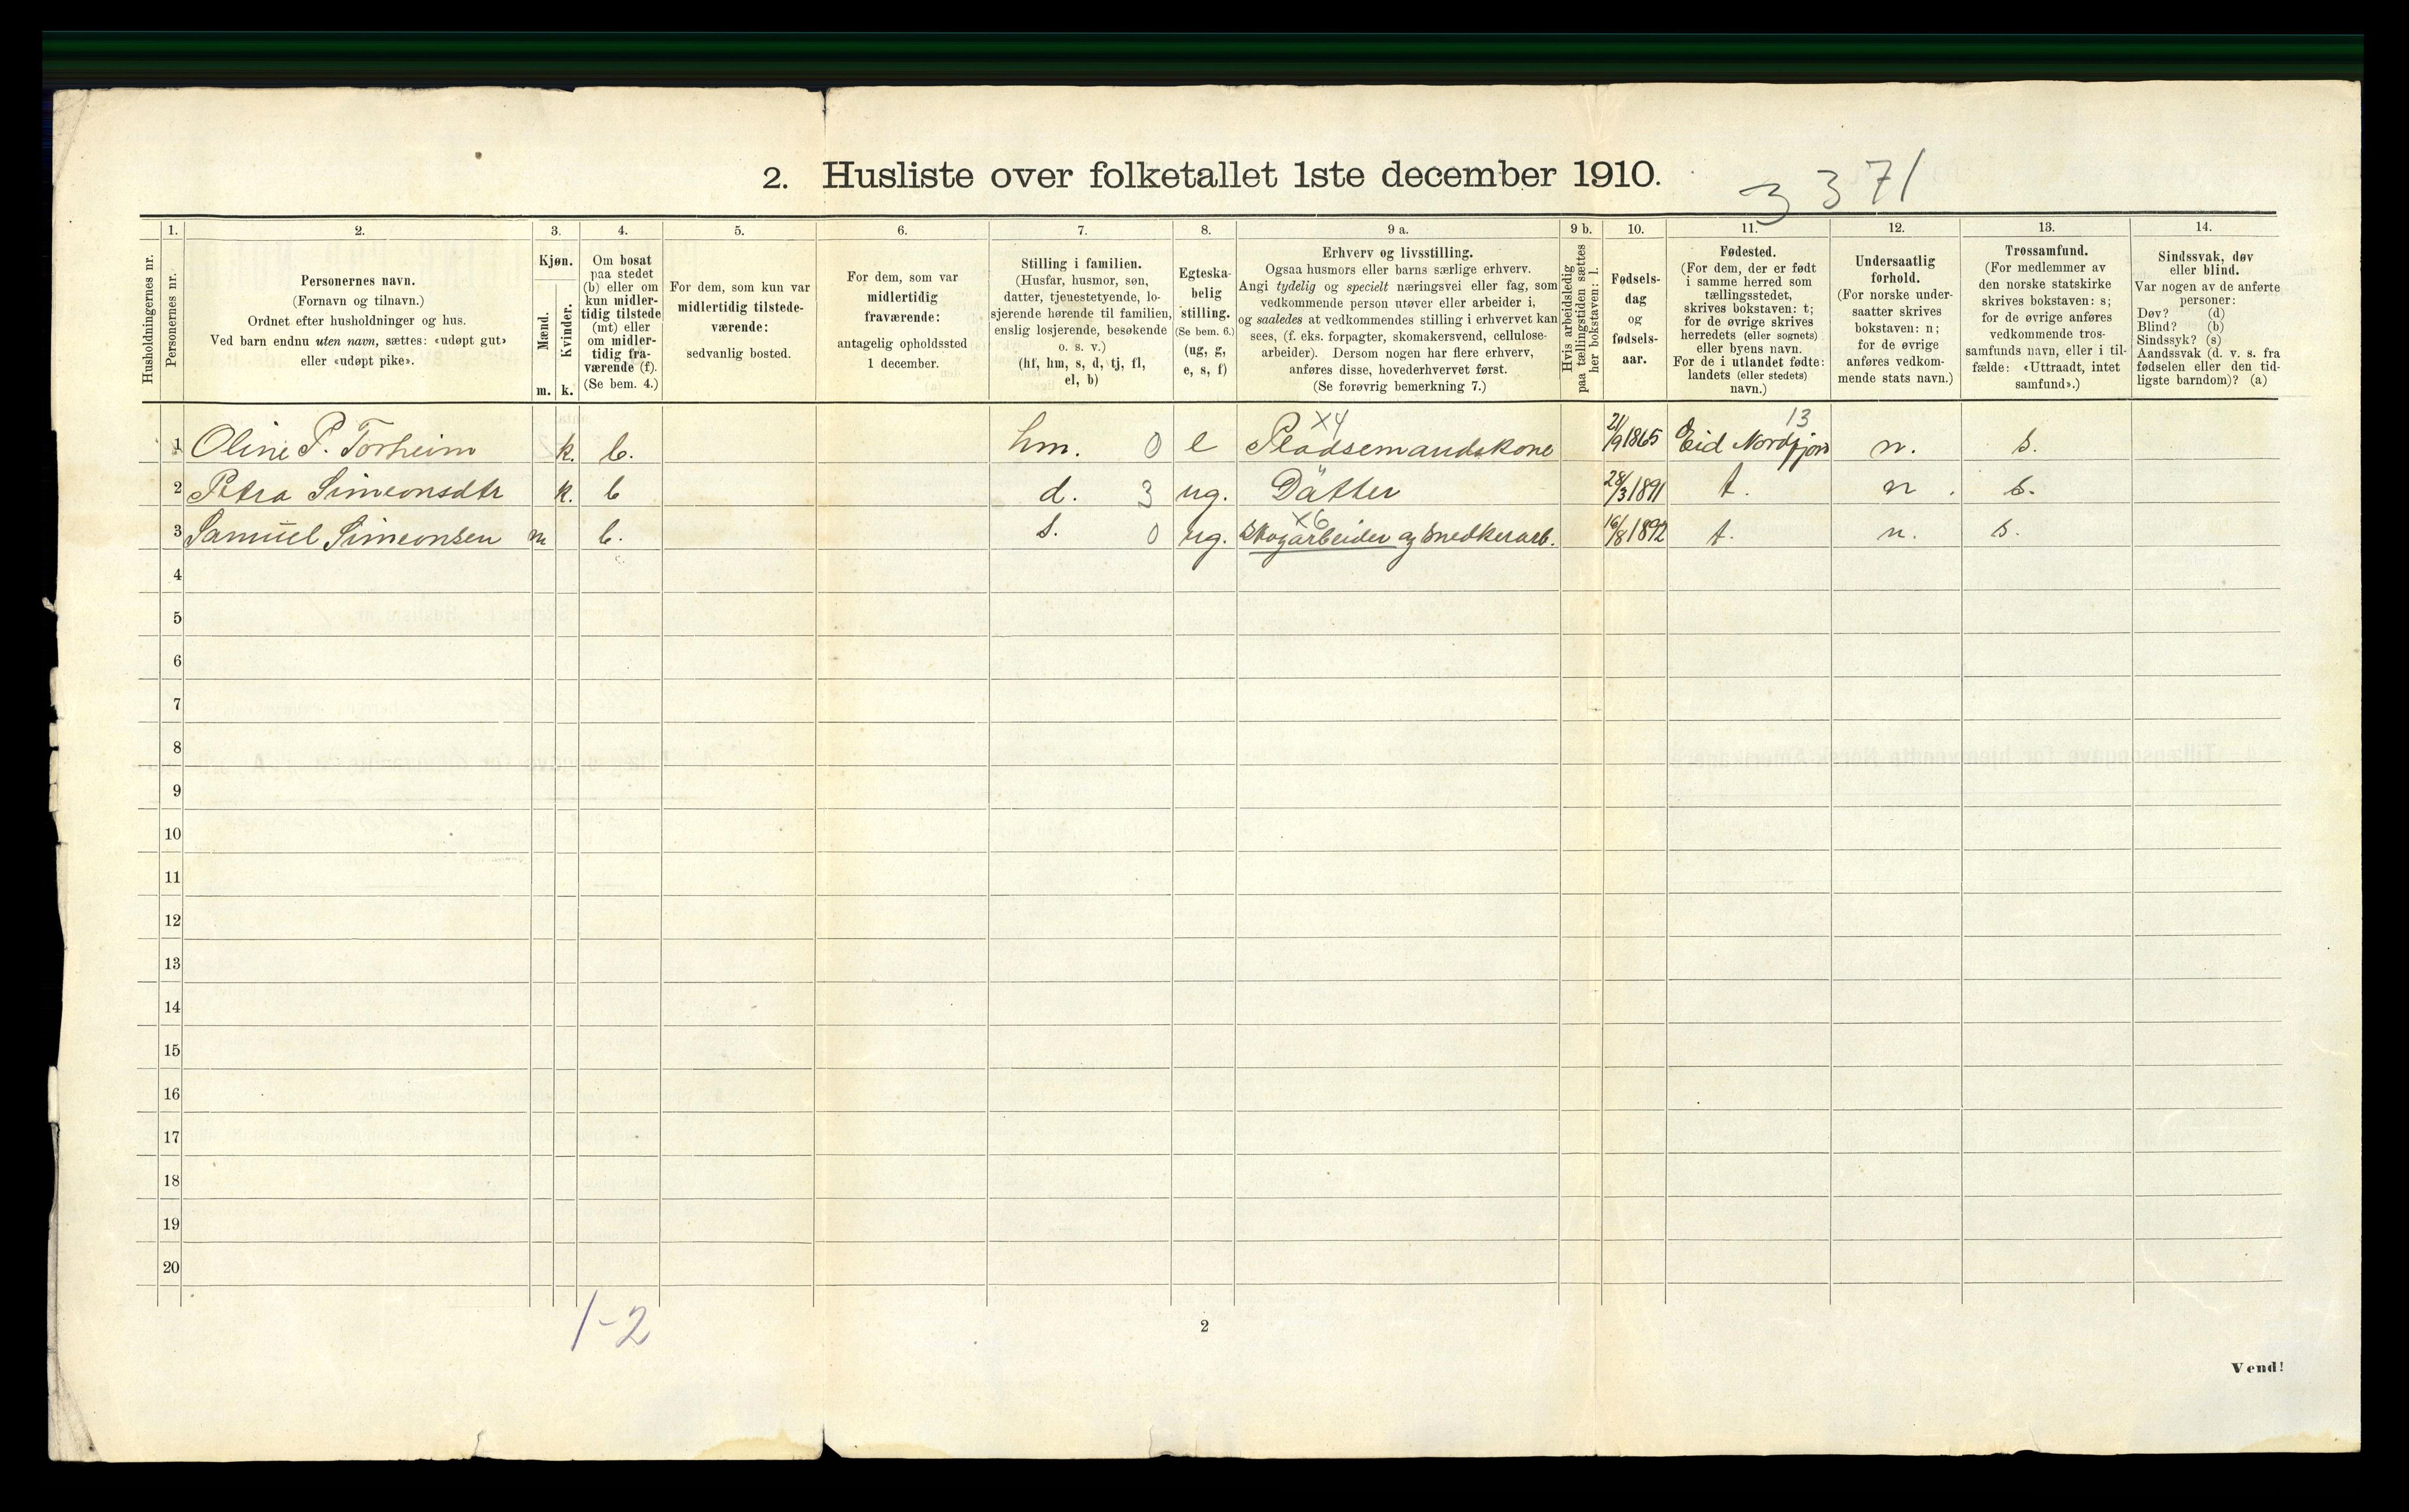 2. Husliste over folketallet 1ste december 1910.
3 371
Husholdningernes nr.
1.
Personernes nr.
2.
Personernes navn.
(Fornavn og tilnavn.)
Ordnet efter husholdninger og hus.
Ved barn endnu uten navn, sættes: «udøpt gut»
eller «udøpt pike».
3.
Kjøn.
Mænd.
Kvinder.
m. k.
4.
Om bosat
paa stedet
(b) eller om
kun midler-
tidig tilstede
(mt) eller
om midler-
tidig fra-
værende (f).
(Se bem. 4.)
5.
For dem, som kun var
midlertidig tilstede-
værende:
sedvanlig bosted.
6.
For dem, som var
midlertidig
fraværende:
antagelig opholdssted
1 december.
7.
Stilling i familien.
(Husfar, husmor, søn,
datter, tjenestetyende, lo-
sjerende hørende til familien,
enslig losjerende, besøkende
o. s. v.)
(hf, hm, s, d, tj, fl,
el, b)
8.
Egteska-
belig
stilling.
(Se bem. 6.)
(ug, g,
e, s, f)
9 a.
Erhverv og livsstilling.
Ogsaa husmors eller barns særlige erhverv.
Angi tydelig og specielt næringsvei eller fag, som
vedkommende person utøver eller arbeider i,
og saaledes at vedkommendes stilling i erhvervet kan
sees, (f. eks. forpagter, skomakersvend, cellulose-
arbeider). Dersom nogen har flere erhverv,
anføres disse, hovederhvervet først.
(Se forøvrig bemerkning 7.)
9 b.
Hvis arbeidsledig
paa tællingstiden sættes
her bokstaven: l.
10.
Fødsels-
dag
og
fødsels-
aar.
11.
Fødested.
(For dem, der er født
i samme herred som
tællingsstedet,
skrives bokstaven: t;
for de øvrige skrives
herredets (eller sognets)
eller byens navn.
For de i utlandet fødte:
landets (eller stedets)
navn.)
12.
Undersaatlig
forhold.
(For norske under-
saatter skrives
bokstaven: n;
for de øvrige
anføres vedkom-
mende stats navn.)
13.
Trossamfund.
(For medlemmer av
den norske statskirke
skrives bokstaven: s;
for de øvrige anføres
vedkommende tros-
samfunds navn, eller i til-
fælde: «Uttraadt, intet
samfund».)
14.
Sindssvak, døv
eller blind.
Var nogen av de anførte
personer:
Døv? (d)
Blind? (b)
Sindssyk? (s)
Aandssvak (d. v. s. fra
fødselen eller den tid-
ligste barndom)? (a)
X4 13
1 Oline P. Torheim k. b. hm. 0 e Pladsemandskone 21/9 1865 Eid Nordfjord n. s.
2 Petra Simeonsdtr k. b d. 3 ug. Dätter 28/3 1891 t. n. s.
X6
3 Samuel Simeonsen m b. s. 0 ug. Skogarbeider og Snedkerarb. 16/8 1892 t. n. s.
4
5
6
7
8
9
10
11
12
13
14
15
16
17
18
19
20
1-2
2
Vend!